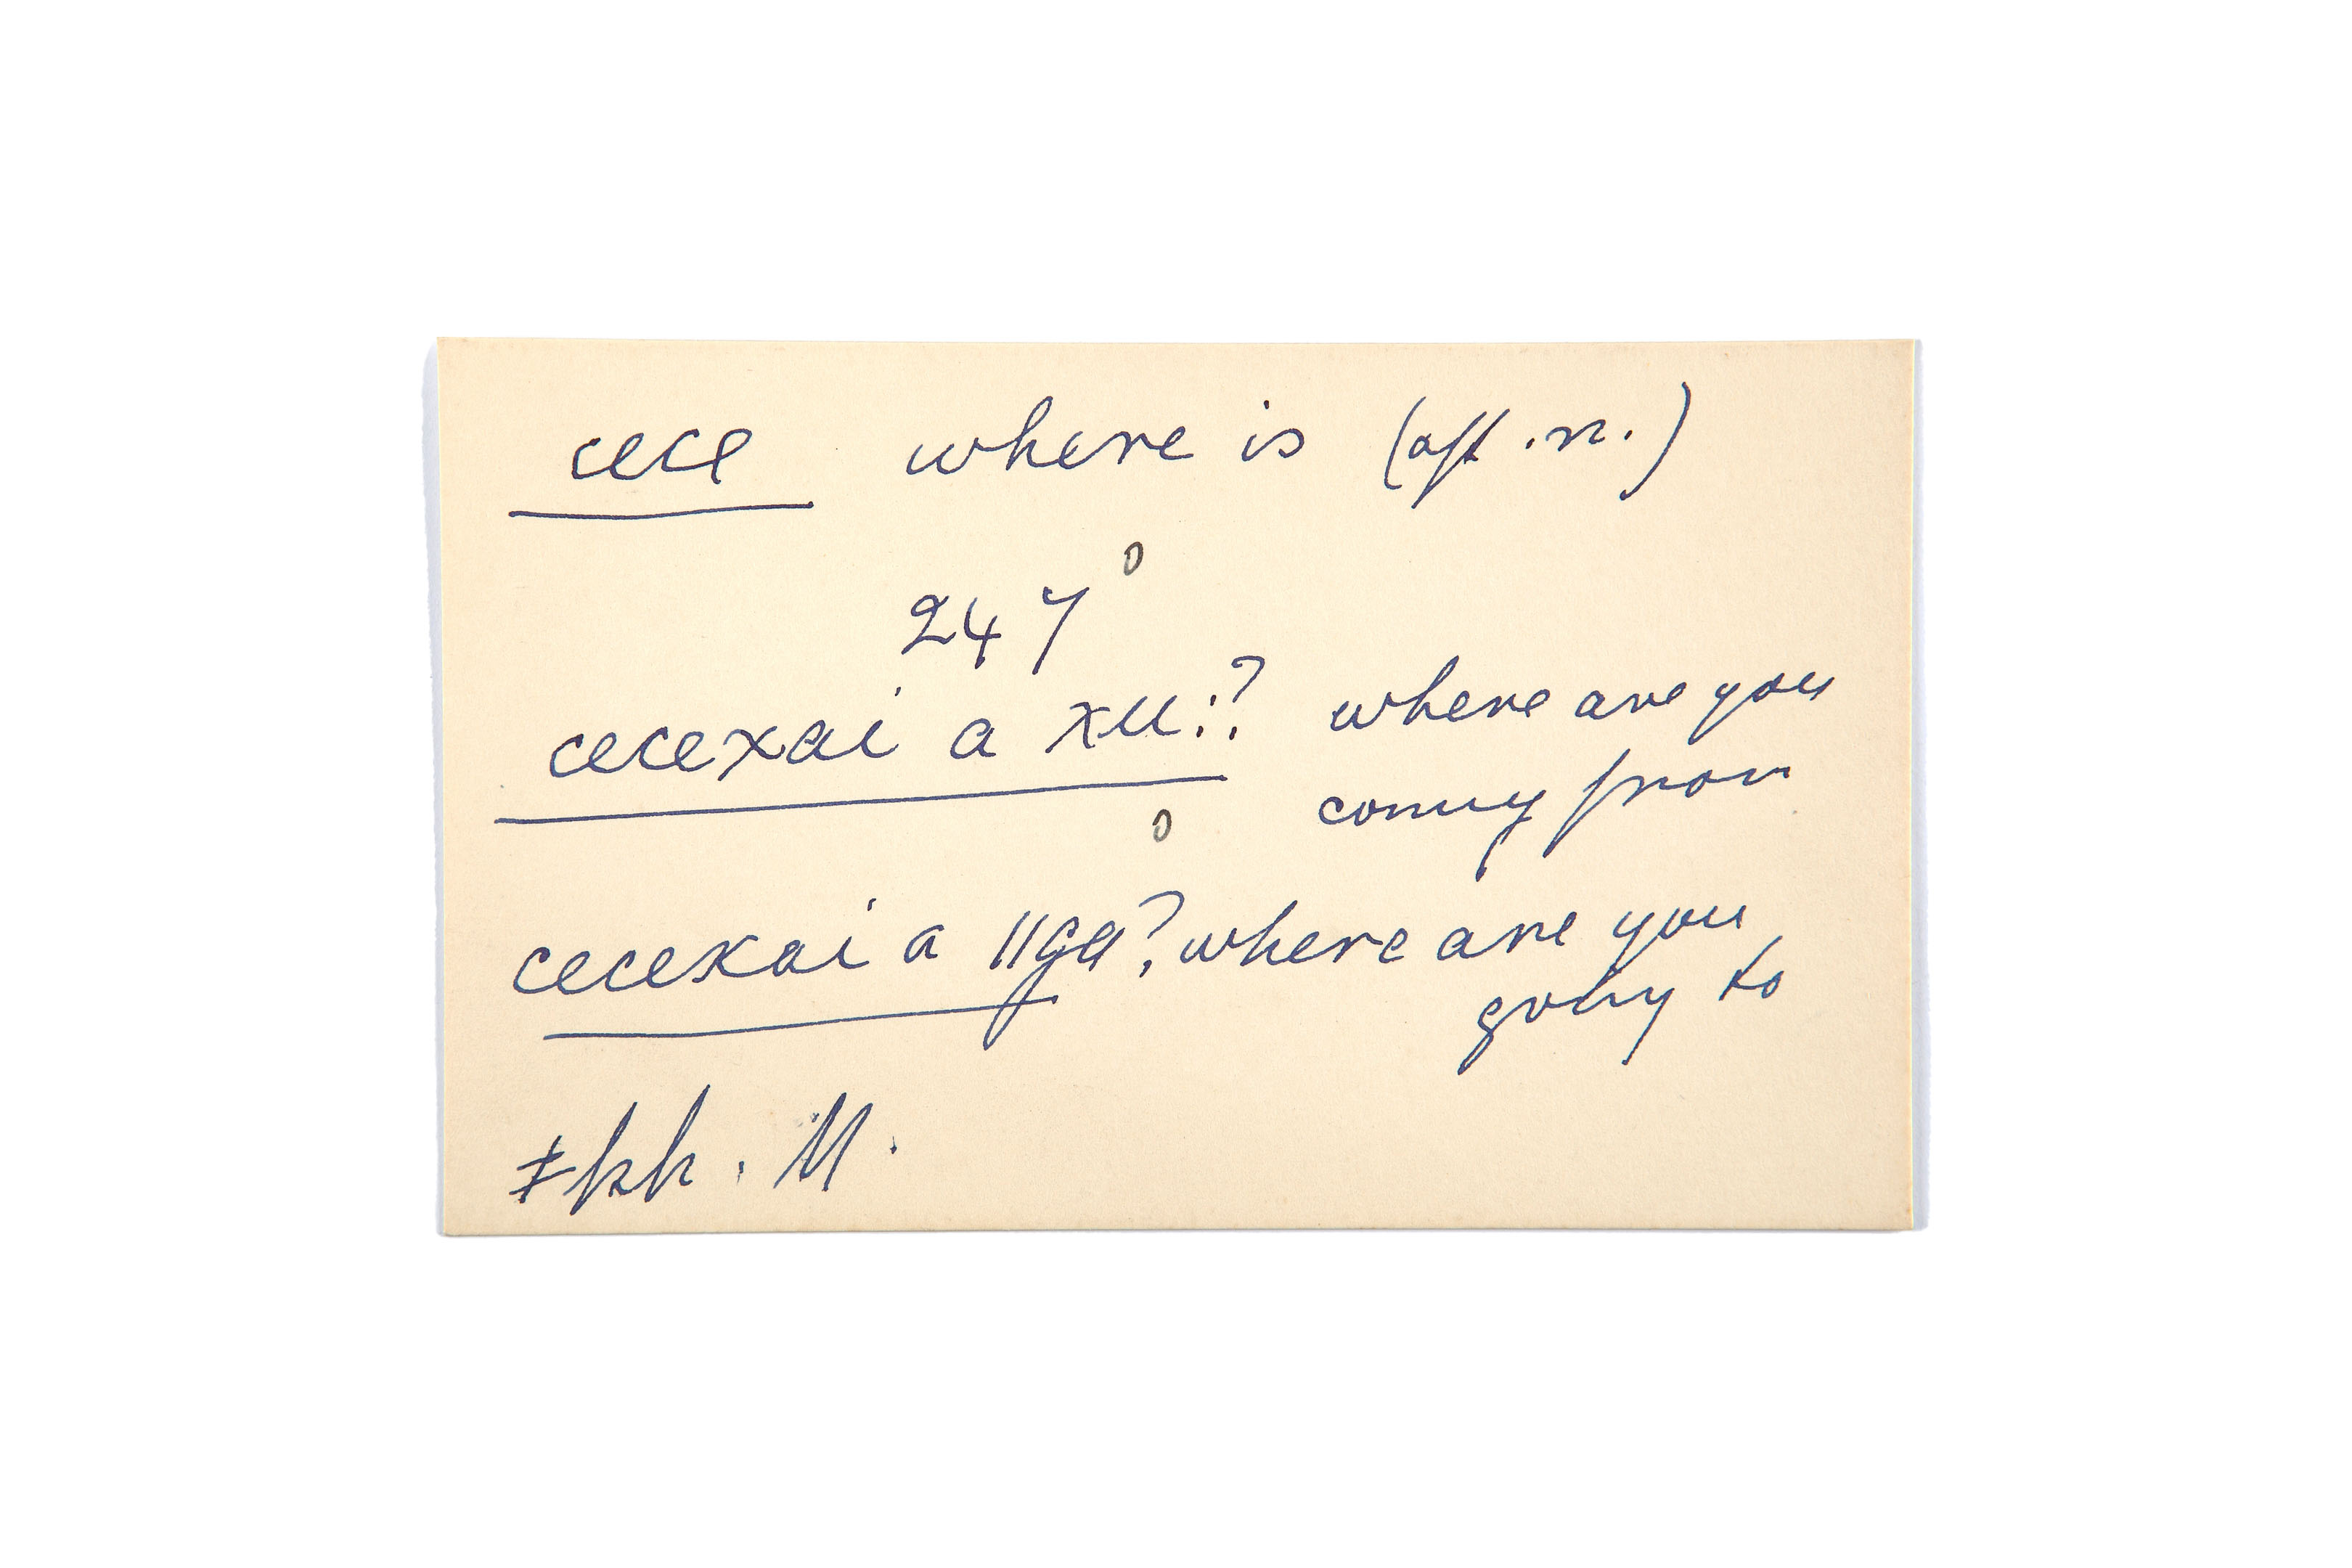 cece where is (aft. n.)
0
247
cecexai a xu:? where are you
coming from
0
cecexai a ||ga? where are you
going to
ǂkh. M.